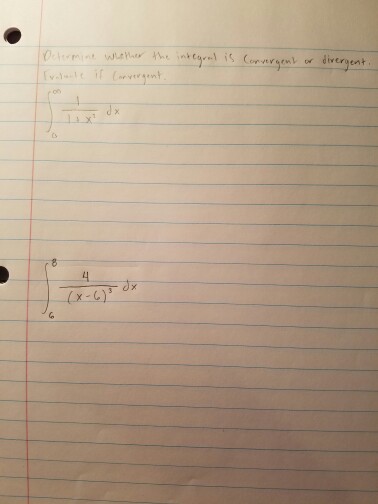 Determine whether the integral is Convergent or divergent.
Evaluate if Convergent.
∫₀^∞ 1/(1+x²) dx
∫₆⁸ 4/(x-6)³ dx